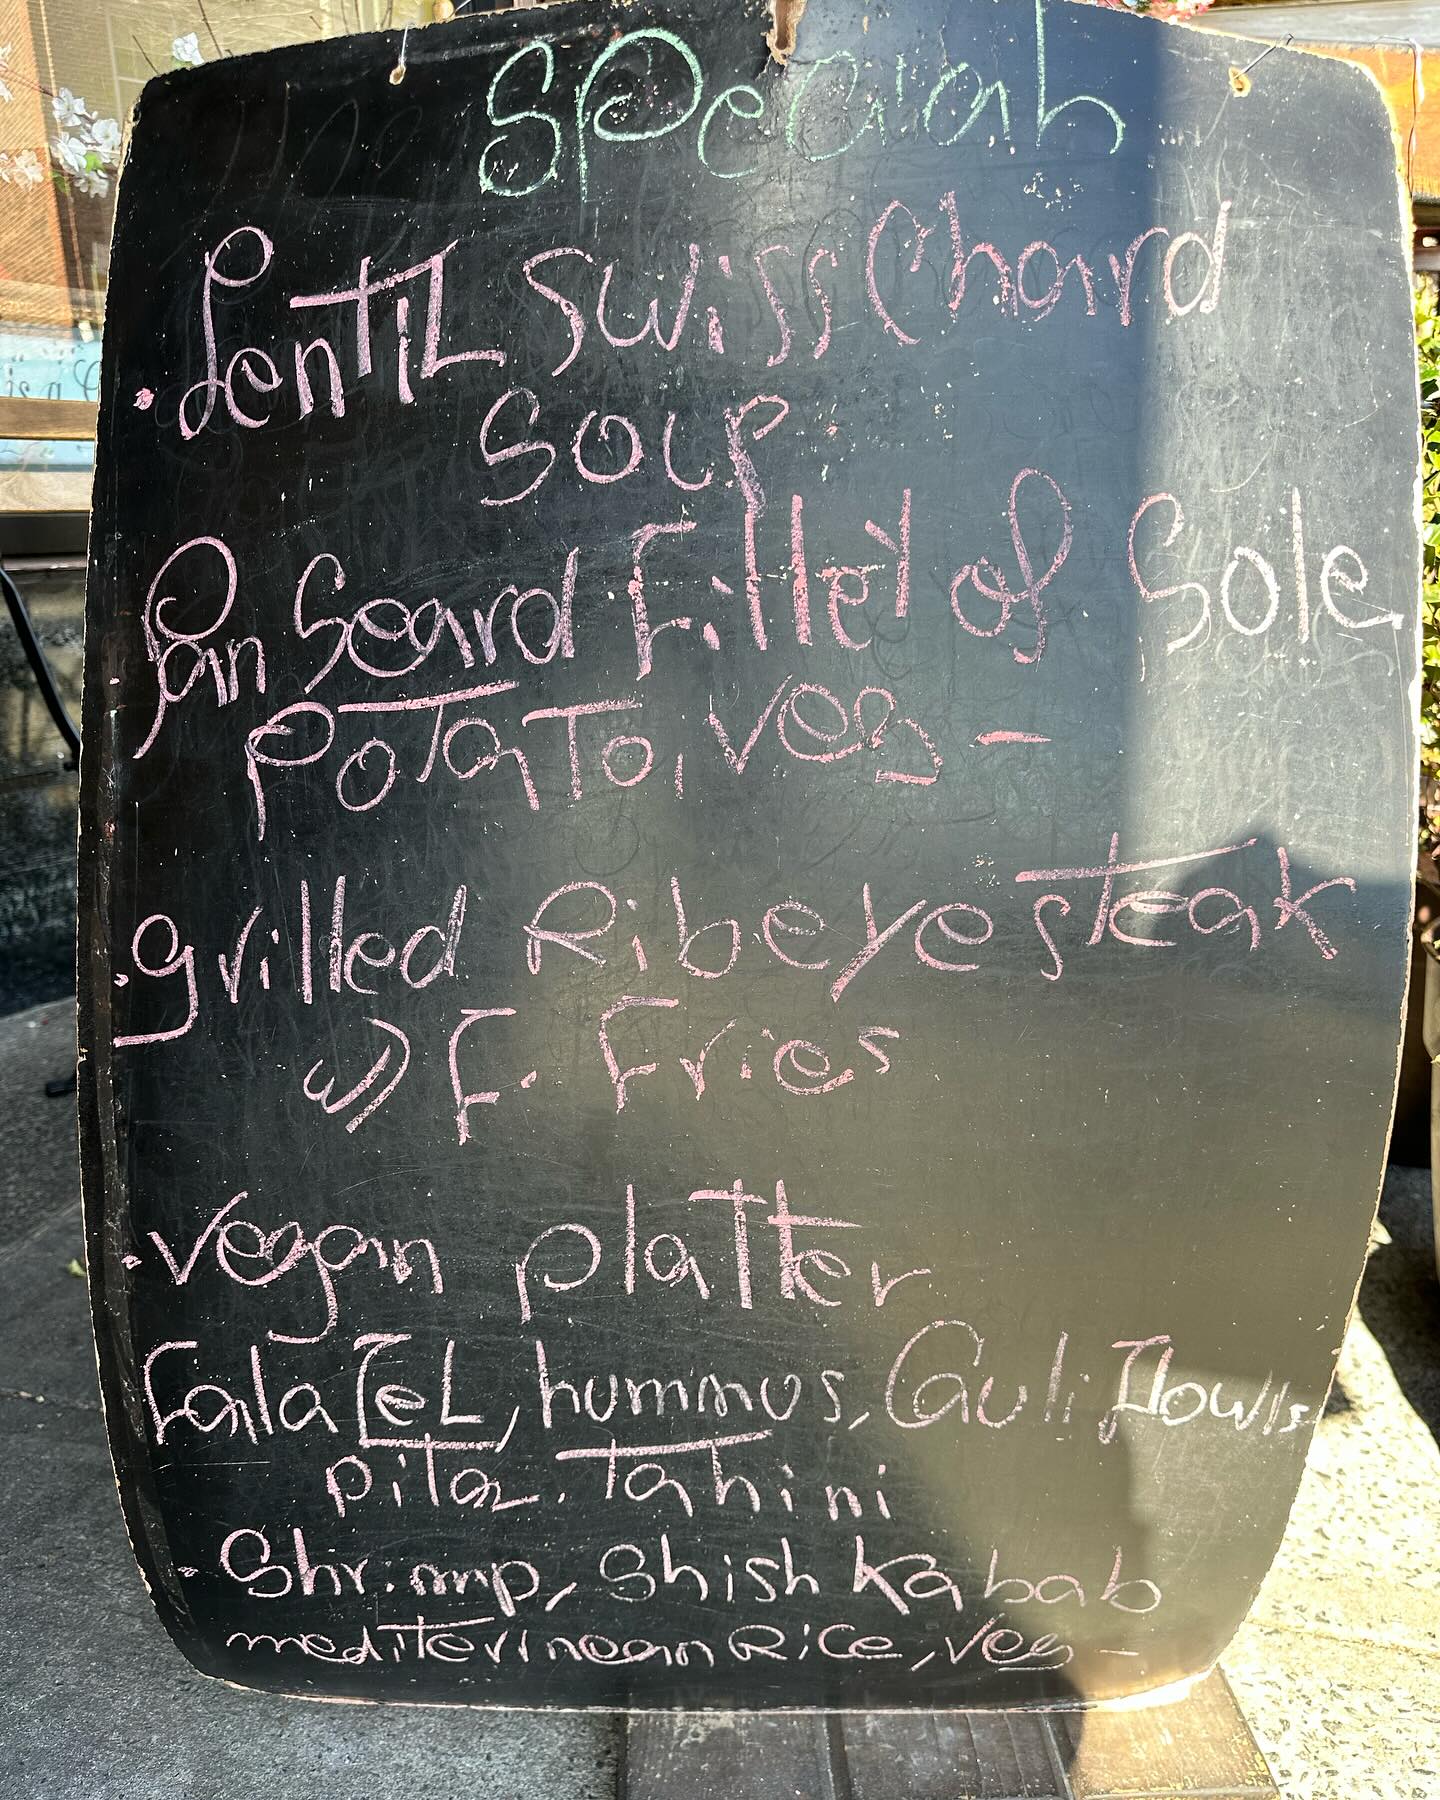 Special
· Lentil Swiss Chard
Soup
· Pan Seard Fillet of Sole
Potato, Veg -
· grilled Ribeye steak
w/ F. Fries
· vegan platter
Falafel, hummus, Cauliflowls
pita. Tahini
- Shrimp, Shish Kabab
mediterinean Rice, veg -